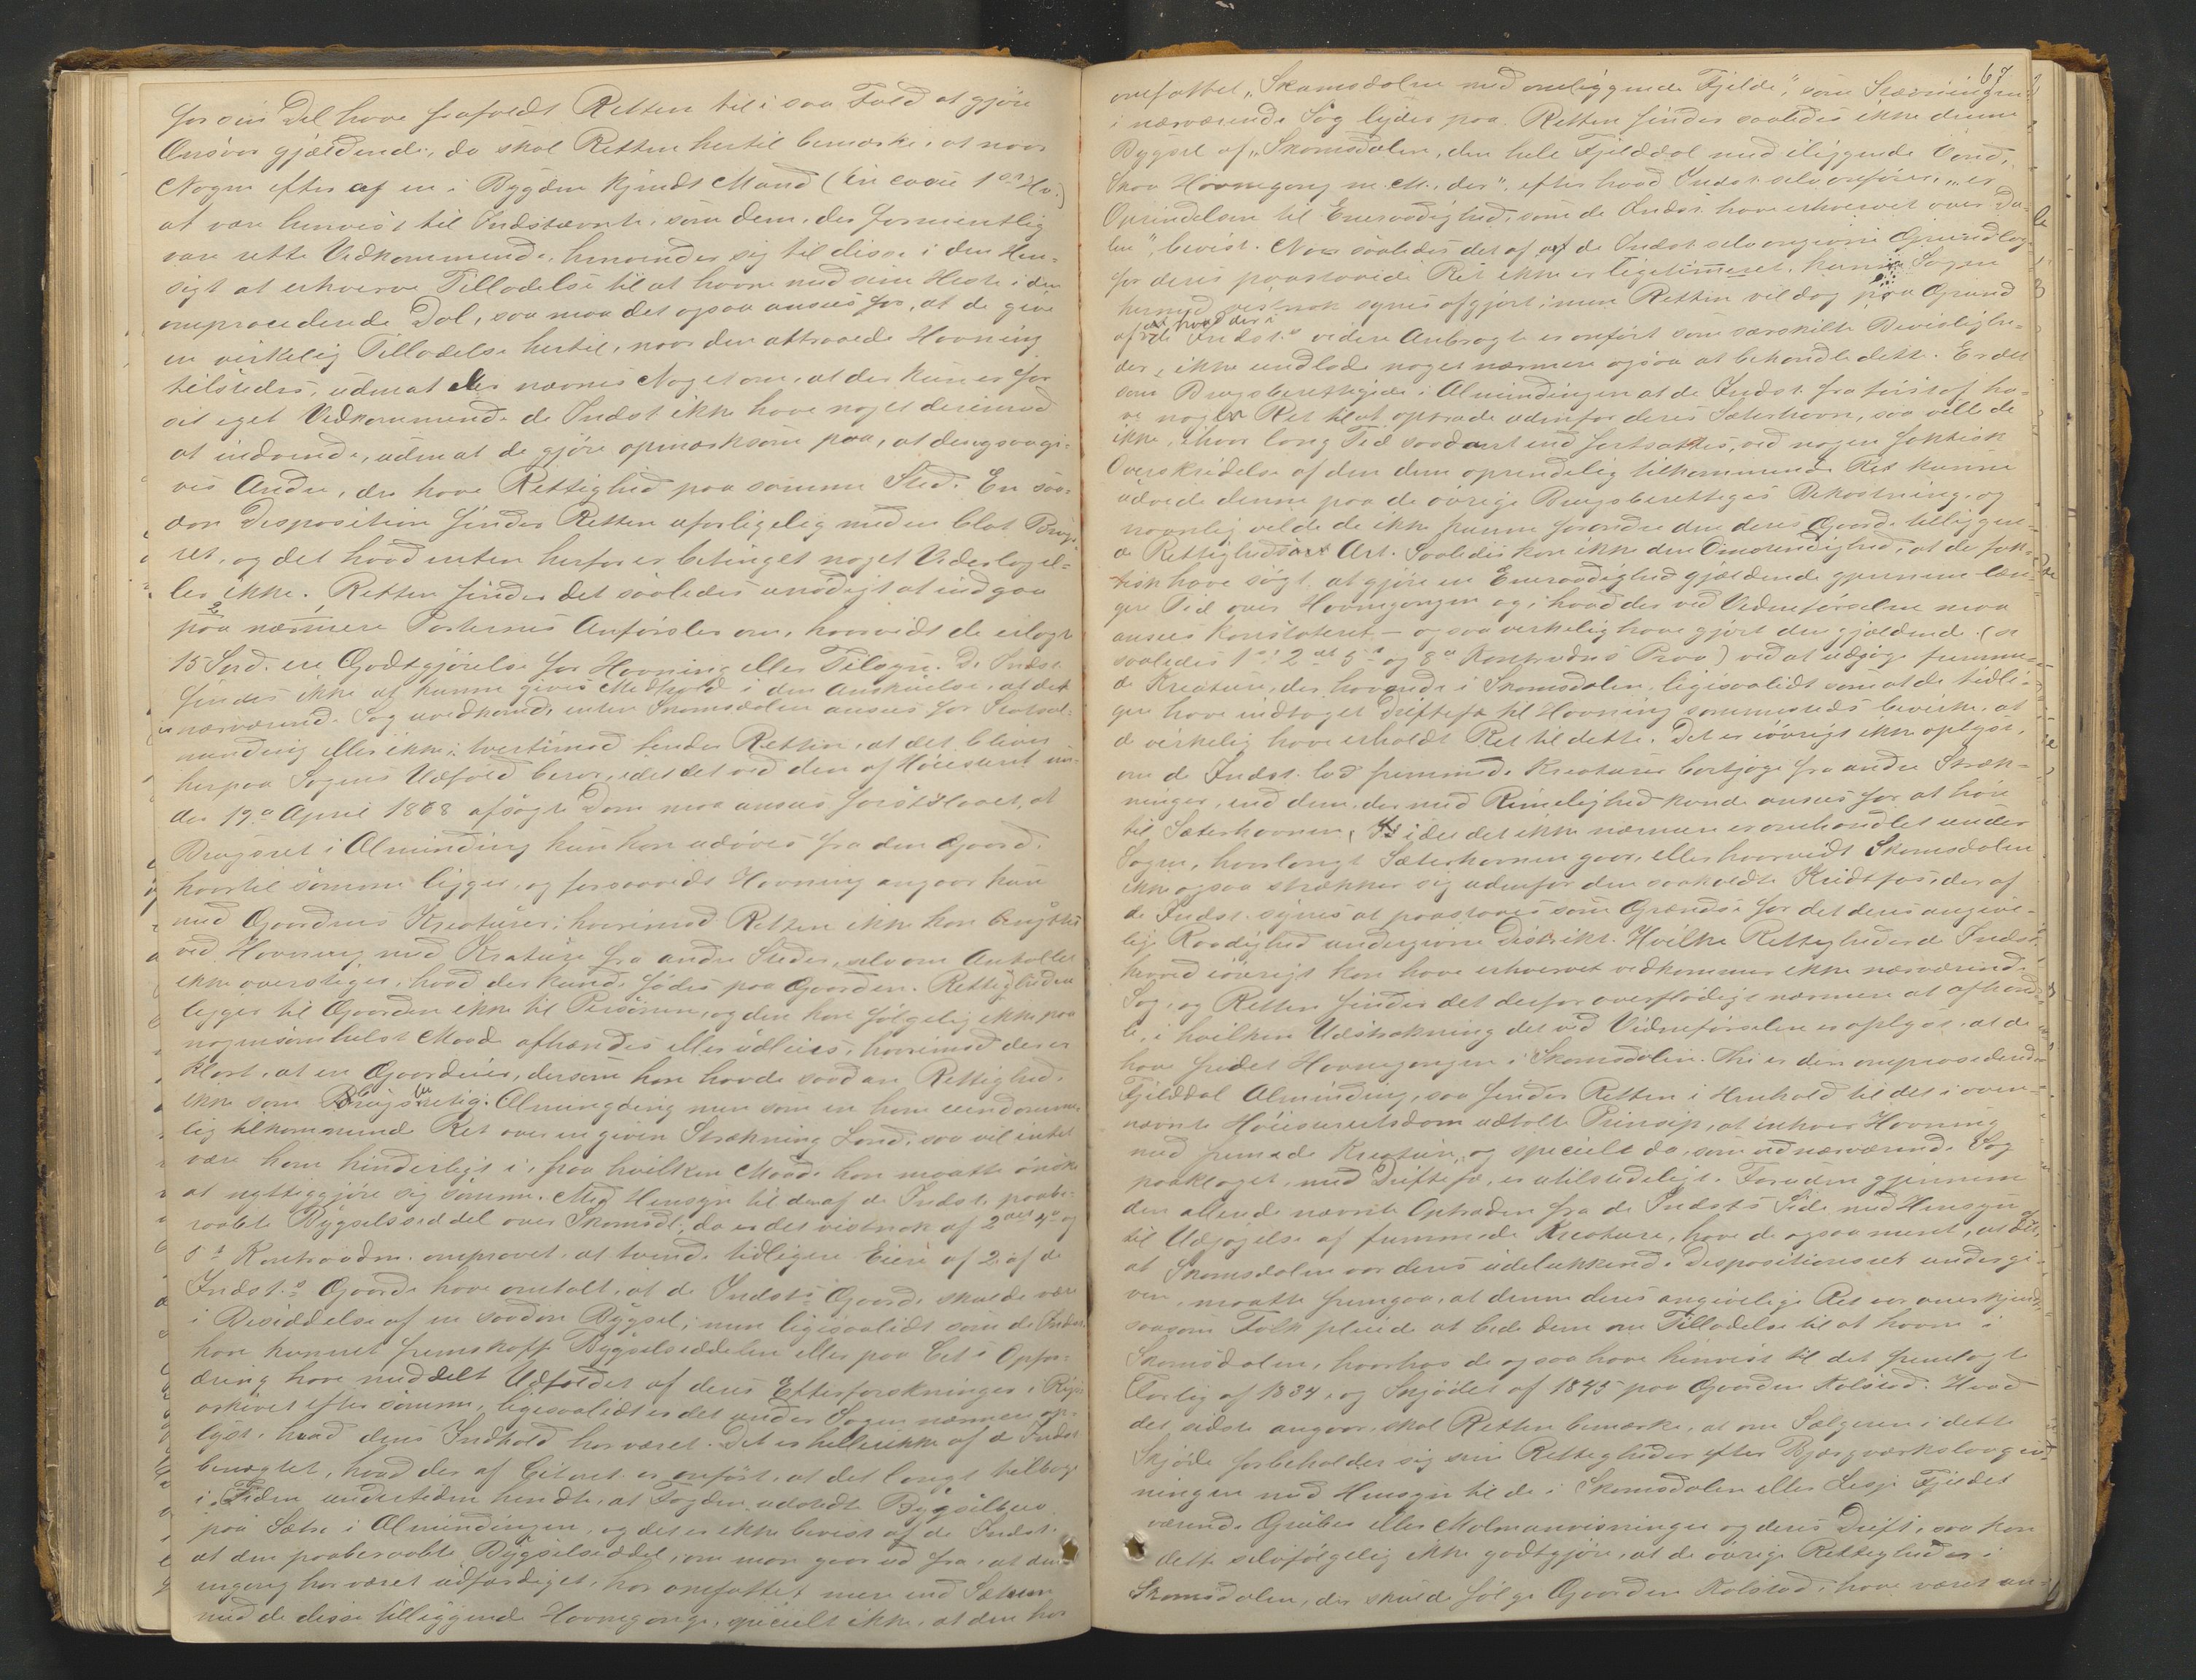 for sin Del have frafaldt Retten til i saa Fald at gjøre
Ansvar gjældende, da skal Retten hertil bemærke, at naar
Nogen efter af en i Bygden kjendt Mand (in casu 1ste Hv.)
at være henvist til Indstævnte, som dem, der formentlig
vare rette Vedkommende, henvender sig til disse i den Hen-
sigt at erhverve Tilladelse til at havne med sine Heste i den
omprocederede Dal, saa maa det ogsaa ansees for, at de give
en virkelig Tilladelse hertil, naar den attraaede Havning
tilstedes, uden at der nævnes Noget om, at der kun er for
sit eget Vedkommende de Indst. ikke have noget derimod
at indvende, uden at de gjøre opmærksom paa, at der ogsaa gi-
ves Andre, der have Rettighed paa samme Sted. En saa-
dan Disposition finder Retten uforligelig med en blot Brugs-
ret, og det hvad enten herfor er betinget noget Vederlag el-
ler ikke. Retten finder det saaledes unødigt at indgaa
paa nærmere Parternes Anførsler om, hvorvidt de erlagte
15 Spd. ere Godtgjørelse for Havning eller Tilsyn. De Indst.
findes ikke at kunne gives Medhold i den Anskuelse, at det
i nærværende Sag uvedkomme, enten Skamsdalen ansees for Statsal-
minding eller ikke; tvertimod finder Retten, at det bliver
herpaa Sagens Udfald beror, idet det ved den af Høiesteret un-
der 19de April 1868 afsagte Dom maa ansees forstslaaet, at
Brugsret i Alminding kun kan udøves fra den Gaard,
hvortil samme ligger, og forsaavidt Havning angaar kun
med Gaardens Kreaturer; hvorimod Retten ikke kan benyttes
ved Havning med Kreature fra andre Steder, selvom Antallet
ikke overstiger, hvad der kunde fødes paa Gaarden. Rettigheden
ligger til Gaarden ikke til Personen, og den kan følgelig ikke paa
nogensomhelst Maade afhændes eller udleies, hvorimod der er
klart, at en Gaardeier, dersom han havde saadan Rettighed,
ikke som Brugsretig i Almingding men som en ham eiendomme-
lig tilkommende Ret over en given Strækning Land, saa vil intet
være ham hinderligt i, paa hvilken Maade han maatte ønske
at nyttiggjøre sig samme. Med Hensyn til den af de Indst. paabe-
raabte Bygselsseddel over Skamsdl., da er det vistnok af 2det 4de og
5te Kontravdn. omprovet, at tvende tidligere Eiere af 2 af de
Indst.s Gaarde have omtalt, at de Indst.s Gaarde skulde være
i Besiddelse af en saadan Bygsel; men ligesaalidt som de Indst.
have kunnet fremskaffe Bygselseddelen eller paa Cit.s Opfor-
dring have meddelt Udfaldet af deres Efterforskninger i Rigs-
arkivet efter samme, ligesaalidt er det under Sagen nærmere op-
lyst, hvad dens Indhold har været. Det er heller ikke af de Indst.
benægtet, hvad der af Citant. er anført, at det langt tilbage
i Tiden undertiden hendte, at Fogden udstedte Bygselbrev
paa Sætre i Almindingen, og det er ikke bevist af de Indst.
at den paaberaabte Bygselseddel, om man gaar ud fra, at den
engang har været udfærdiget, har omfattet mer end Sætrene
med de disse tilliggende Havnegange, specielt ikke, at den har
67
omfattet „Skamsdalen med omliggende Fjelde“, som Stævningen
i nærværende Sag lyder paa. Retten finder saaledes ikke denne
Bygsel af „Skamsdalen, den hele Fjelddal med iliggende Vand,
Skov Havnegang m. M., der“, efter hvad Indst. selv anfører, „er
Oprindelsen til Eneraadighed, som de Indst. have erhvervet over Da-
len“, bevist. Naar saaledes det af af de Indst. selv angivne Grundlag
for deres paastaaede Ret ikke er legitimeret, kunde Sagen
hermed vestnok synes afgjort; men Retten vil dog paa Grund
af at hvad der i de Indst.s videre Anbragte er anført som særskilte Bevislighe-
der, ikke undlade noget nærmere ogsaa at behandle dette. Er det
som Brugsberettigede i Almindingen at de Indst. fra først af ha-
ve nogen Ret til at optræde udenfor deres Sæterhavn, saa ville de
ikke, i hvor lang Tid saadant end fortsættes, ved nogen faktisk
Overskridelse af den dem oprindelig tilkommende Ret kunne
udvide denne paa de øvrige Brugsberettiges Bekostning, og
navnlig vilde de ikke kunne forandre den deres Gaarde tilliggen-
de Rettigheds Art. Saaledes kan ikke den Omstændighed, at de fak-
tisk have søgt at gjøre en Eneraadighed gjældende gjennem læn-
gere Tid over Havnegangen og i hvad der ved Vidneførselen maa
ansees konstateret – ogsaa virkelig have gjort den gjældende (se
saaledes 1ste 2det 5te og 8de Kontravdns Prov) ved at udjage fremme-
de Kreature, der havnede i Skamsdalen, ligesaalidt som at de tidli-
gere have indtaget Driftefæ til Havning sammesteds bevirke, at
de virkelig have erholdt Ret til dette. Det er iøvrigt ikke oplyst,
om de Indst. lod fremmede Kreaturer bortjage fra andre Stræk-
ninger, end dem, der med Rimelighed kunde ansees for at høre
til Sæterhavnen, idet det ikke nærmere er omhandlet under
Sagen, hvorlangt Sæterhavnen gaar, eller hvorvidt Skamsdalen
ikke ogsaa strækker sig udenfor den saakaldte Kridtfos, der af
de Indst. synes at paastaaes som Grændse for det deres angive-
lige Raadighed undergivne Distrikt. Hvilke Rettigheder de Indst.
herved iøvrigt kan have erhvervet vedkommer ikke nærværende
Sag, og Retten finder det derfor overflødigt nærmere at afhand-
le, i hvilken Udstrækning det ved Vidneførselen er oplyst, at de
have fredet Havnegangen i Skamsdalen. Thi er den omprosederede
Fjelddal Alminding, saa finder Retten i Henhold til det i oven-
nævnte Høiesteretsdom udtalte Princip, at enhver Havning
med fremede Kreature, og specielt da, som ved nærværende Sag
paaklaget, med Driftefæ, er utilstedeligt. Foruden gjennem
den allerede nævnte Optræden fra de Indsts Side med Hensyn
til Udjagelse af fremmede Kreature, have de ogsaa ment, at det,
at Skamsdalen var deres udelukkende Dispositionsret undergi-
ven, maatte fremgaa, at denne deres angivelige Ret var anerkjendt
saasom Folk pleiede at bede dem om Tilladelse til at havne i
Skamsdalen, hvorhos de ogsaa have henvist til det fremlagte
Forlig af 1834, og Skjødet af 1845 paa Gaarden Kolstad. Hvad
det sidste angaar, skal Retten bemærke, at om Sælgeren i dette
Skjøde forbeholder sig sine Rettigheder efter Bjergværkslovgiv-
ningen med Hensyn til de i Skamsdalen eller Lesje Fjelde
værende Gruber eller Malmanvisninger og deres Drift, saa kan
dette selvfølgelig ikke godtgjøre, at de øvrige Rettigheder i
Skamsdalen, der skulde følge Gaarden Kolstad, have været an-